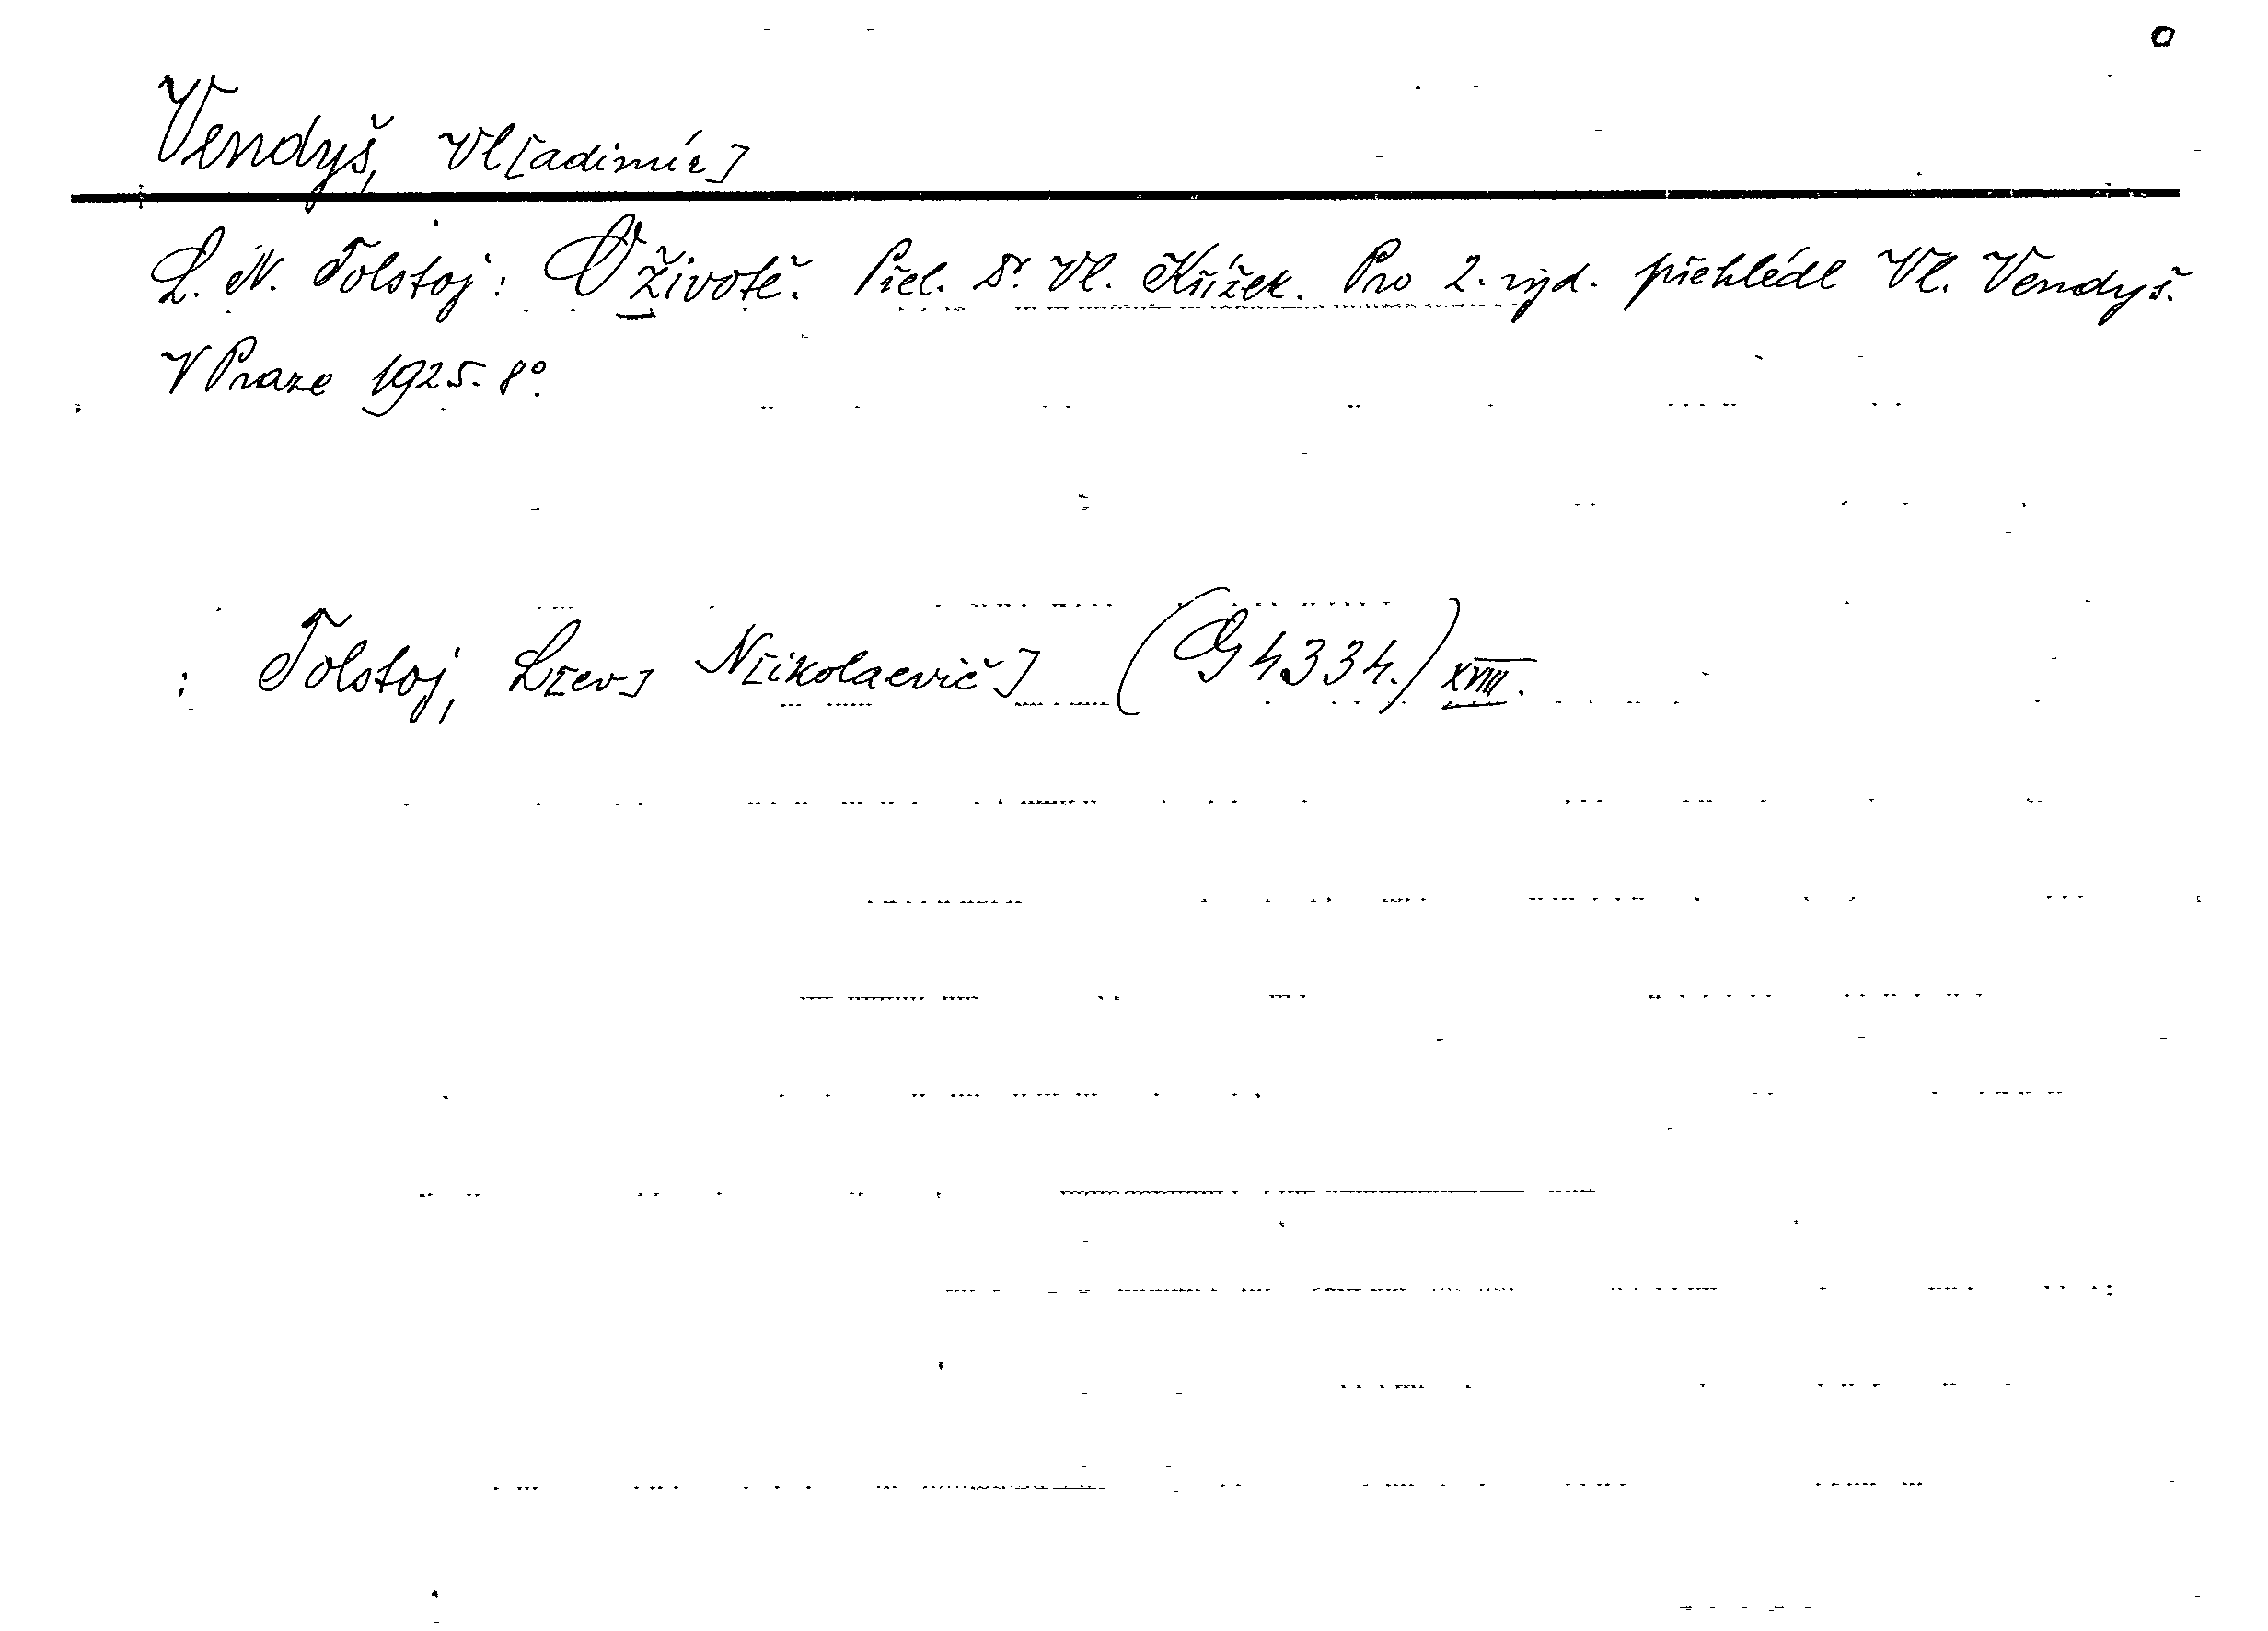 Vendyš, Vl[adimír]
L. N. Tolstoj: O životě. Přel. Dr. Vl. Křížek. Pro 2. vyd. přehlédl Vl. Vendyš.
V Praze 1925. 8°.
: Tolstoj, L[ev] N[ikolaevič] (G 4334.) XVIII.